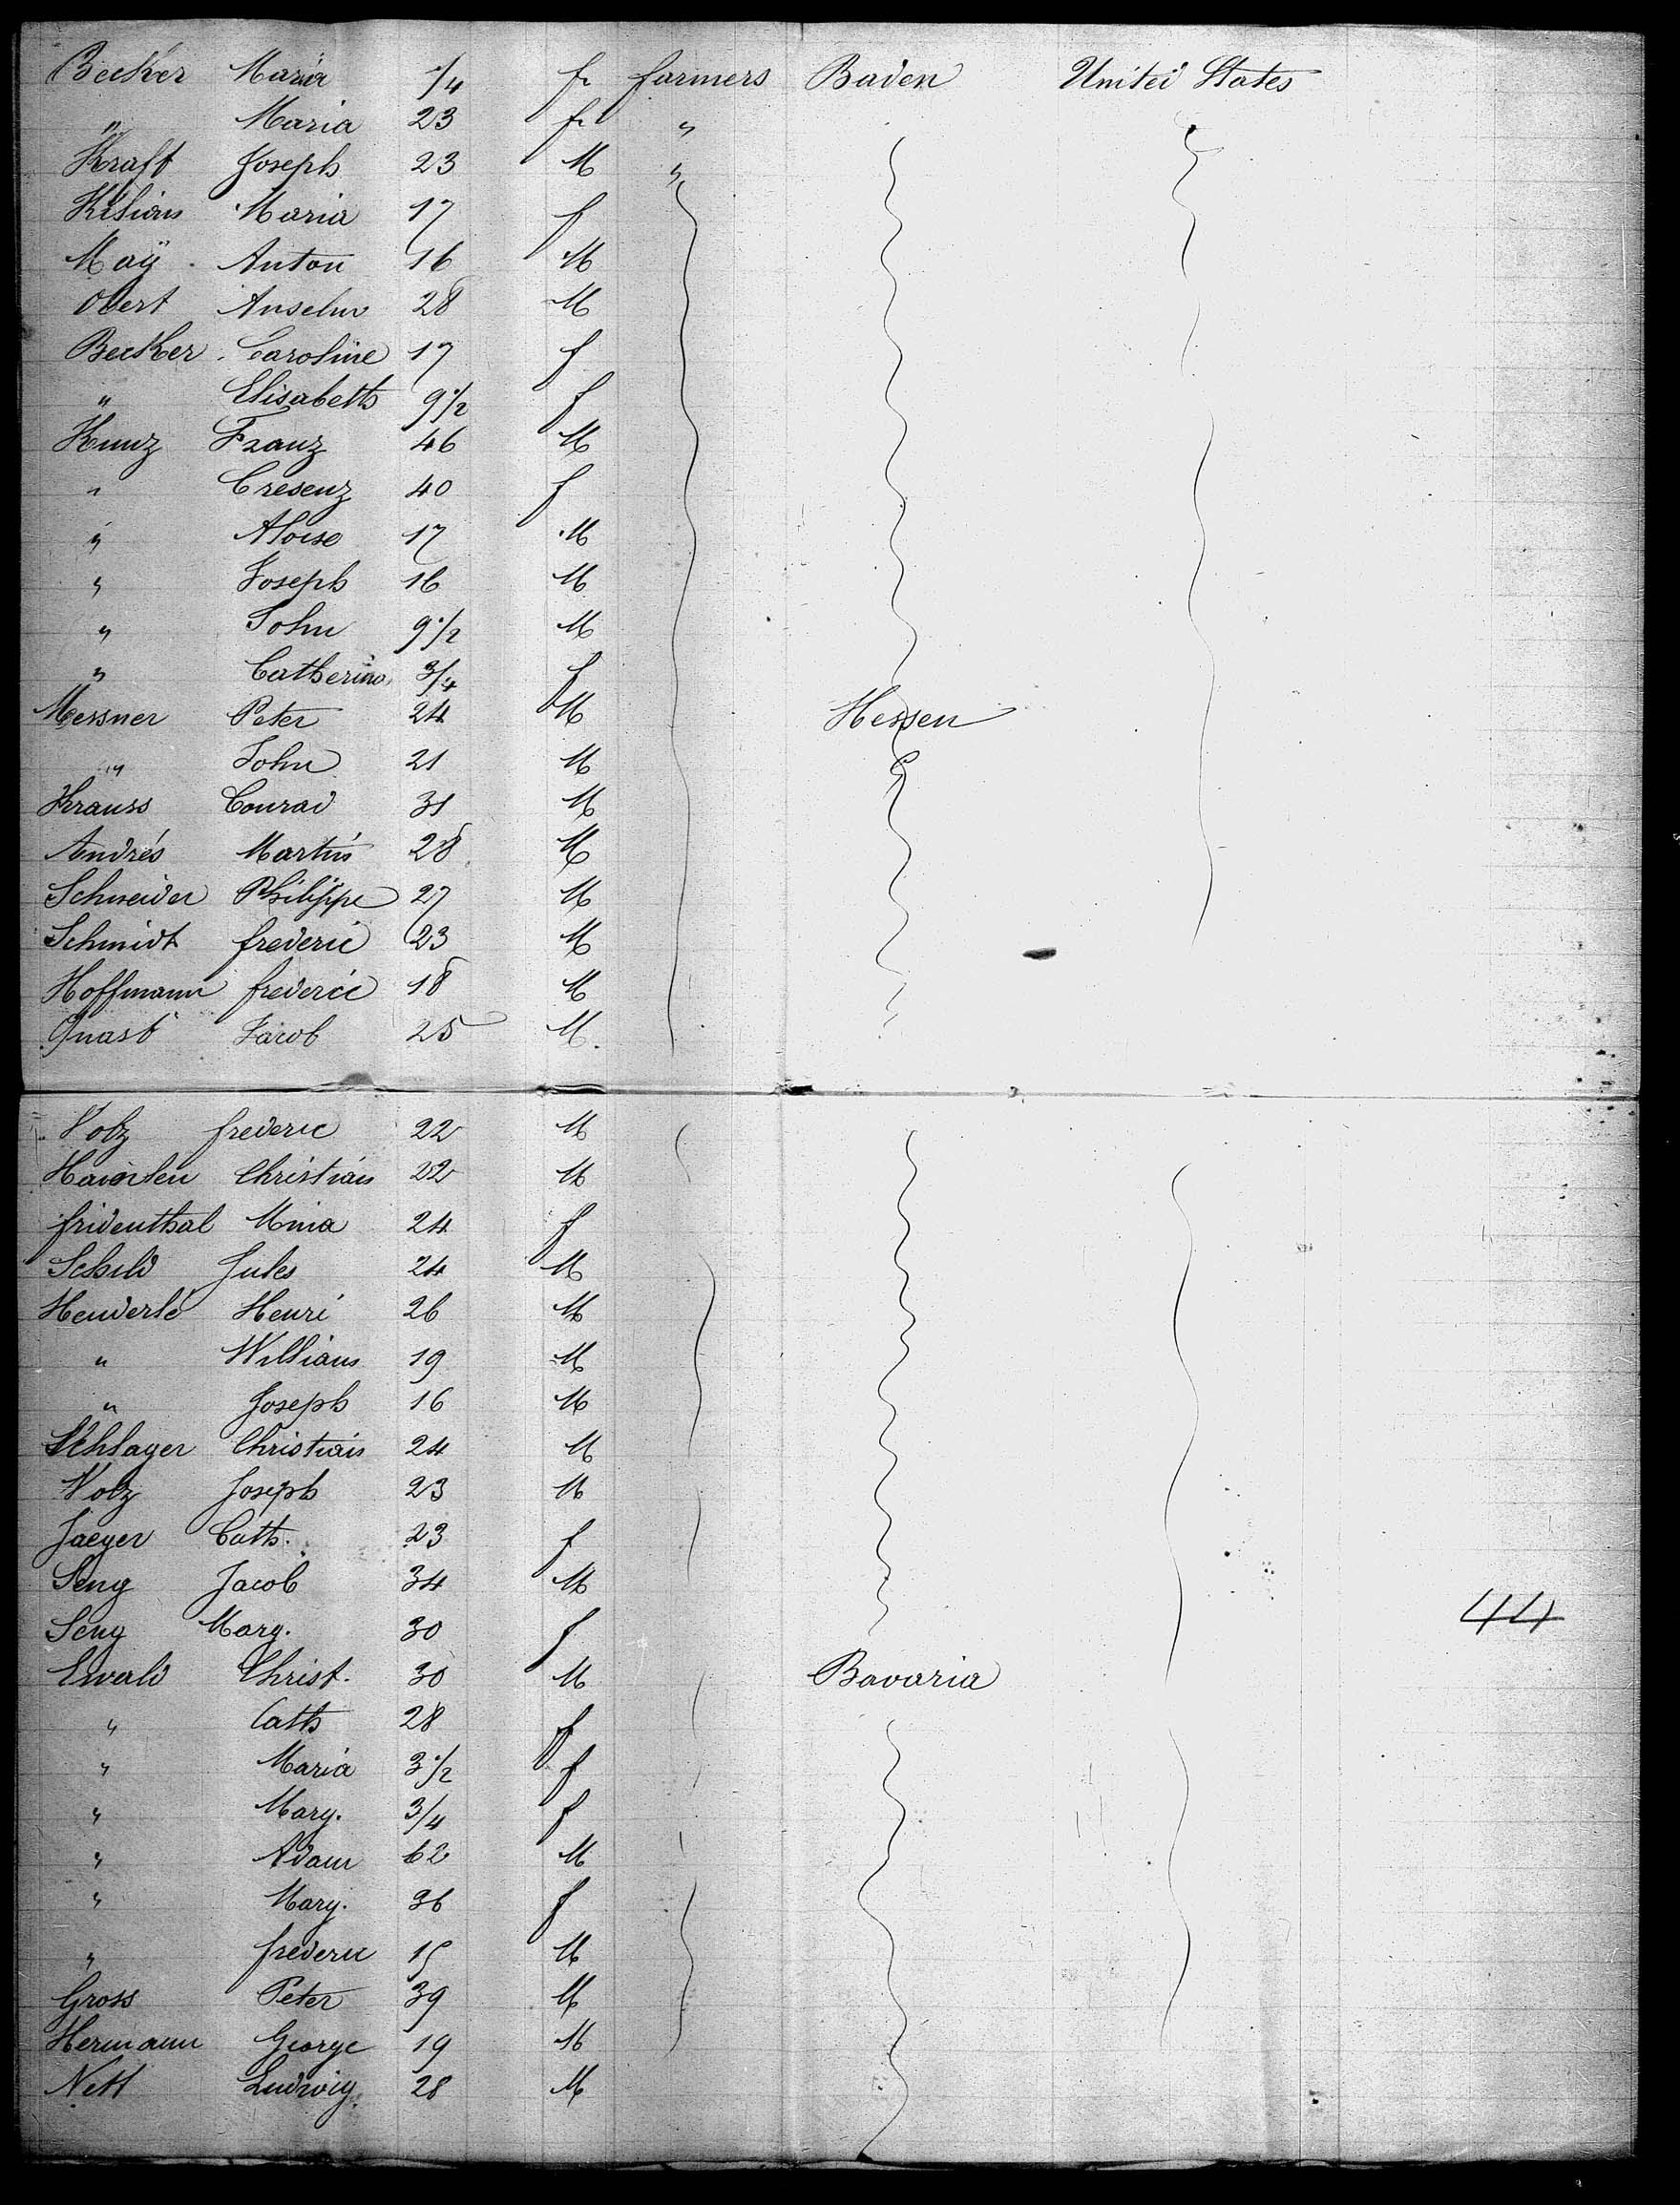 Becker Maria 1/4 f farmers Baden United States
" Maria 23 f "
Kraft Joseph 23 M "
Kilian Maria 17 f
Maÿ Anton 16 M
Obert Anselm 28 M
Becker Caroline 17 f
" Elisabeth 9 1/2 f
Kunz Franz 46 M
" Cresenz 40 f
" Aloise 17 M
" Joseph 16 M
" John 9 1/2 M
" Catherina 3/4 f
Messner Peter 24 M Hessen
" John 21 M
Krauss Conrad 31 M
Andrés Martin 28 M
Schneider Philippe 27 M
Schmidt frederic 23 M
Hoffmann frederic 18 M
Quast Jacob 25 M.
Volz frederic 22 M
Christian 22 M
fridenthal Mina 24 f
Schild Jules 24 M
Henderlé Henri 26 M
" William 19 M
" Joseph 16 M
Schlager Christian 24 M
Volz Joseph 23 M
Jaeger Cath. 23 f
Seng Jacob 34 M
Seng Marg. 30 f 44
Ewald Christ. 30 M Bavaria
" Cath 28 f
" Maria 3 1/2 f
" Marg. 3/4 f
" Adam 62 M
" Marg. 36 f
" frederic 15 M
Gross Peter 39 M
Hermann George 19 M
Nett Ludwig 28 M